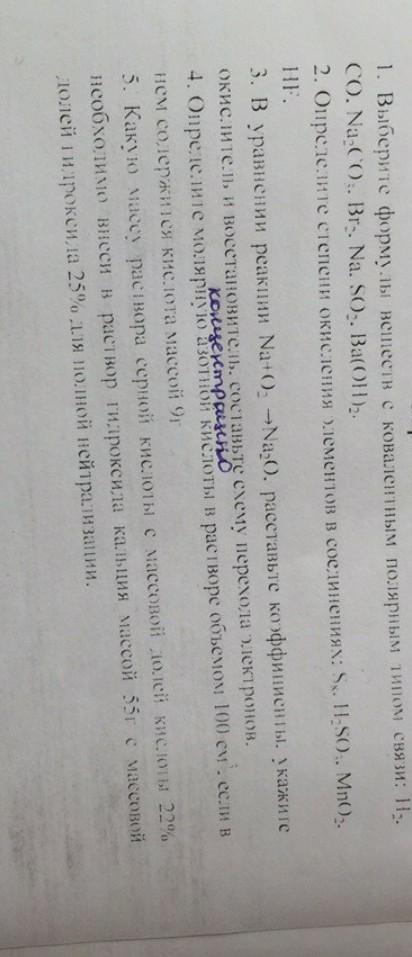 1. Выберите формулы веществ с ковалентным полярным типом связи: H₂,
CO, Na₂CO₃, Br₂, Na, SO₂, Ba(OH)₂.
2. Определите степени окисления элементов в соединениях: S₈, H₂SO₃, MnO₂,
HF.
3. В уравнении реакции Na+O₂ →Na₂O, расставьте коэффициенты, укажите
окислитель и восстановитель, составьте схему перехода электронов.
концентрацию
4. Определите молярную азотной кислоты в растворе объемом 100 см³, если в
нем содержится кислота массой 9г
5. Какую массу раствора серной кислоты с массовой долей кислоты 22%
необходимо внеси в раствор гидроксида кальция массой 55г с массовой
долей гидроксида 25% для полной нейтрализации.